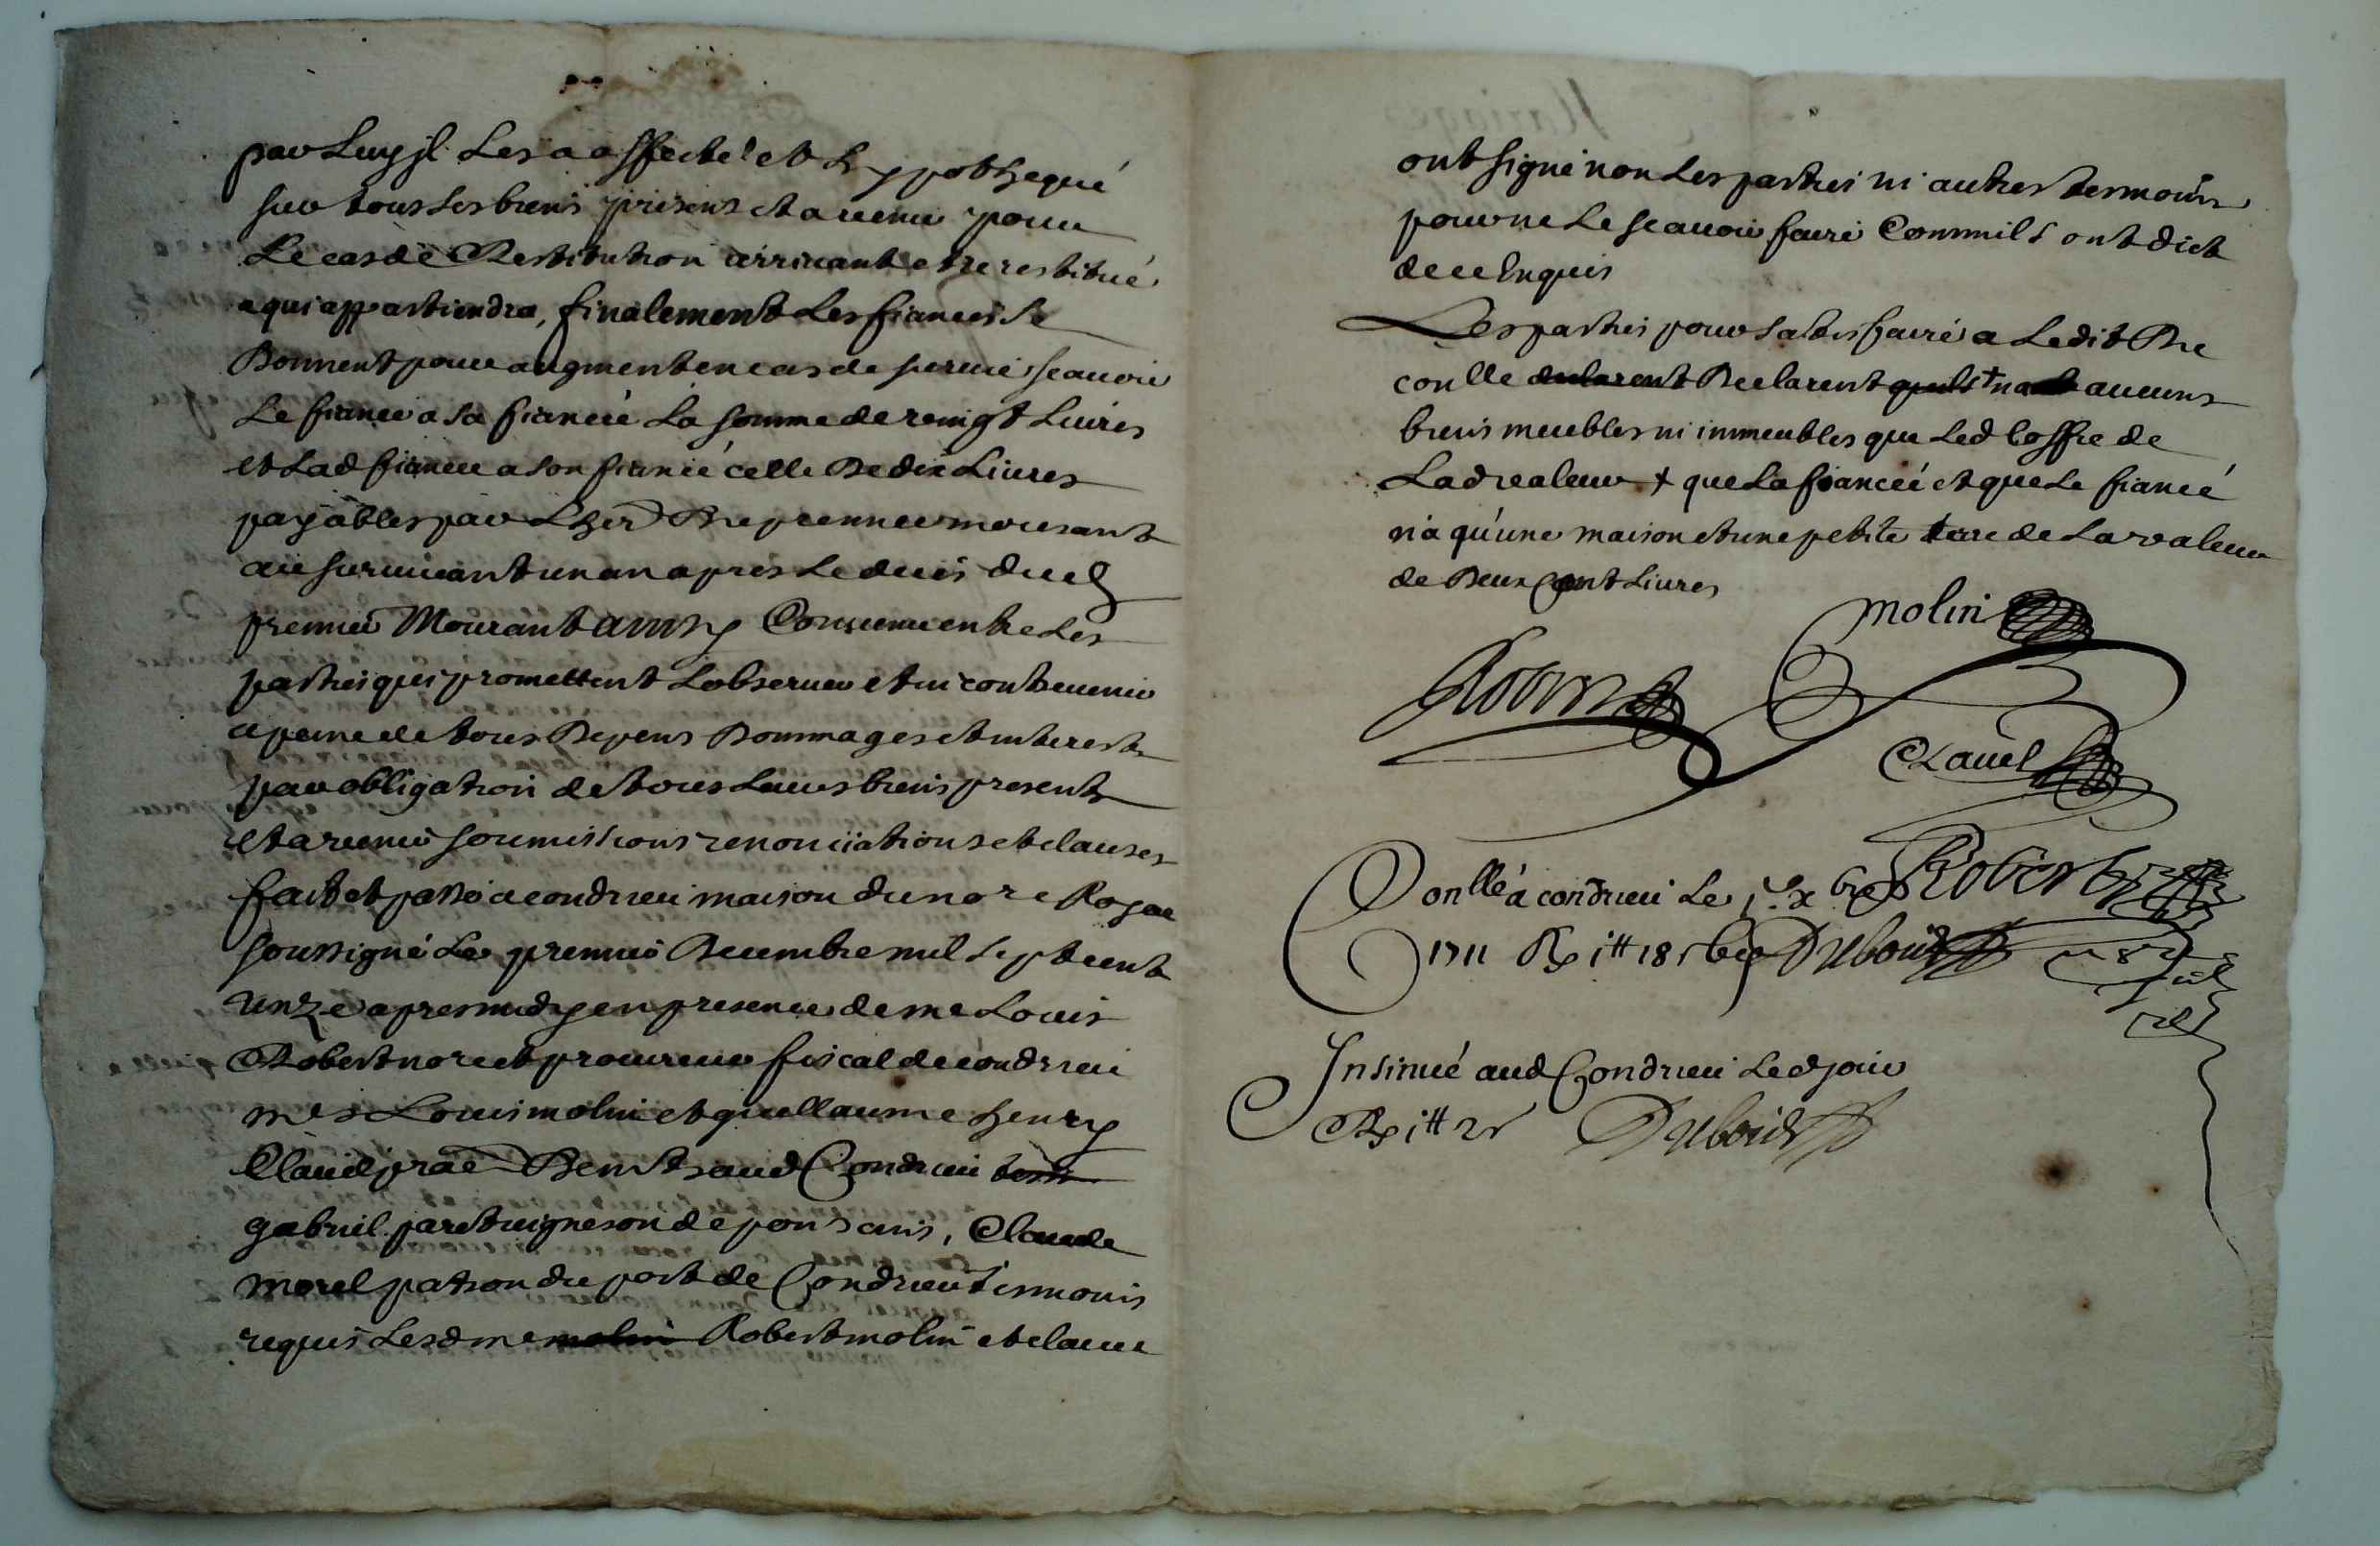 par Luy jl Les a affecte et hyppothequé
sur tous ses biens presens et a uenir pour
Le cas de Restitution arriuant etre restitué
a qui appartiendra, finalement Les fiances se
Donnent pour augment en cas de suruie scauoir
Le fiance a sa fiancée La somme de vingt Liures
et Lad fiancee a son fiancé celle De dix Liures
payables par Lher Du premier mourant
au suruiuant un an apres Le deces dud
premier Mourant ainsy Conuenu entre Les
parties qui promettent Lobseruer et ni contreuenir
a peine de tous Depens Dommages et interests
par obligation de tous Leurs biens presents
et a uenir soumissions renonciations et clauses
fait et passé a condrieu maison du nore Royal
soussigné Le premier Decembre mil sept cent
unze apres midy en presence de me Louis
Robert nore et procureur fiscal de condrieu
mes Louis molin et guillaume henry
Clauel pra͠e Demts aud Condrieu tesm
gabriel paret uigneron de ponsains, Claude
morel patron du port de Condrieu tesmoins
requis Lesd me molin Robert molin et clauel
ont signé non Les parties ni autres tesmoins
pour ne Le scauoir faire Comm ils ont dict
de ce Enquis
Les parties pour satisfaire a Ledit Du
conlle declarent Declarent quils + na aucuns
biens meubles ni immeubles que Led Coffre de
Lad valeur + que La fiancée et que Le fiancé
n'a qu'une maison et une petite terre de La valeur
de Deux Cent Liures
molin
Clauel
Robert
Conllé a condrieu Le
1711 Duboud
Insinué aud Condrieu Led jour
Duboud